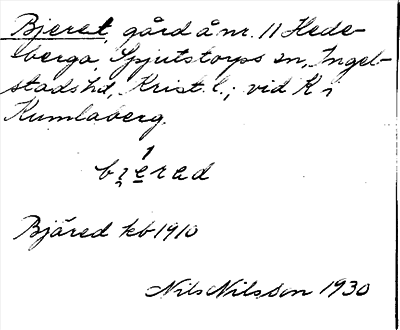 Bjeret, gård å nr. 11 Hede-
berga, Spjutstorps sn, Ingel-
stads hd, Krist. l.; vid K i
Kumlaberg.
bɿerad
Bjäred kb 1910
Nils Nilsson 1930